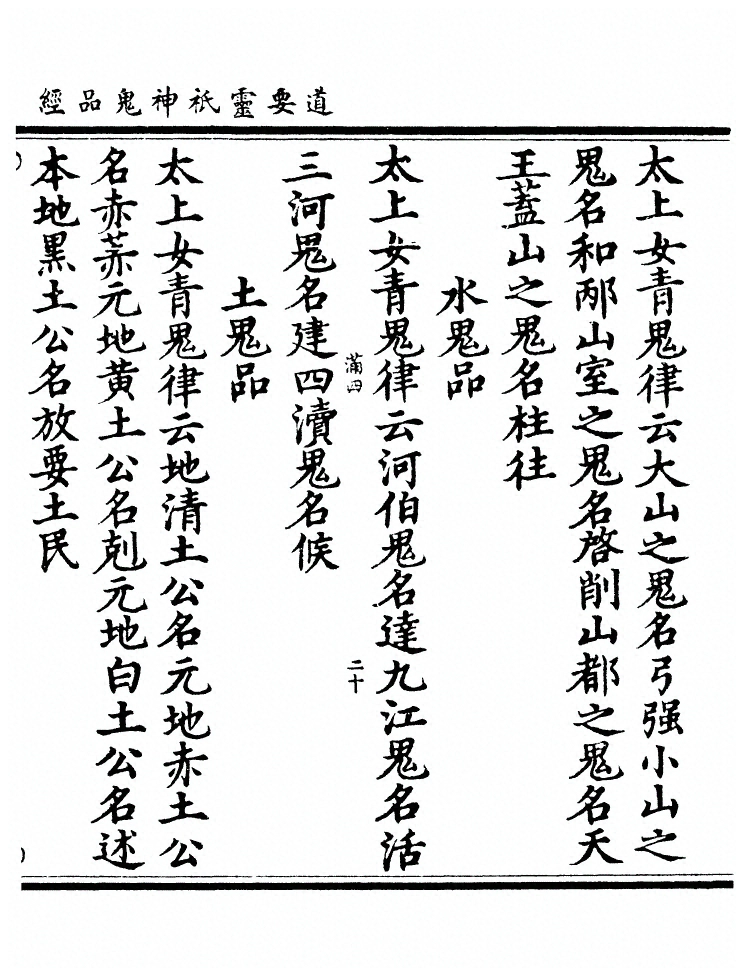 道要靈祇神鬼品經
太上女青鬼律云大山之鬼名弓强小山之
鬼名和邴山室之鬼名啓削山都之鬼名天
王蓋山之鬼名柱往
水鬼品
太上女青鬼律云河伯鬼名達九江鬼名活
滿四
二十
三河鬼名建四瀆鬼名候
土鬼品
太上女青鬼律云地清土公名元地赤土公
名赤萘元地黄土公名剋元地白土公名述
本地黑土公名放要土民